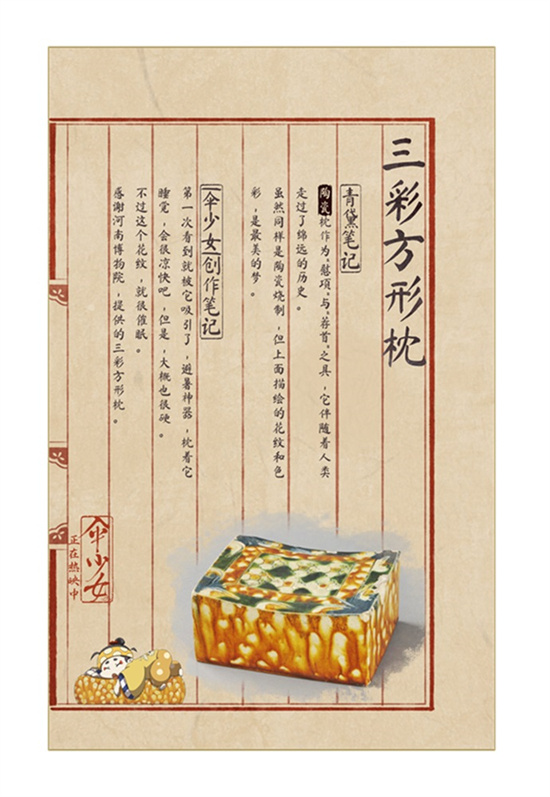 三彩方形枕
青黛笔记
陶瓷枕作为“憩项”与“荐首”之具，它伴随着人类
走过了绵远的历史。
虽然同样是陶瓷烧制，但上面描绘的花纹和色
彩，是最美的梦。
伞少女创作笔记
第一次看到就被它吸引了，避暑神器，枕着它
睡觉，会很凉快吧，但是，大概也很硬。
不过这个花纹，就很催眠。
感谢河南博物院，提供的三彩方形枕。
伞少女
正在热映中